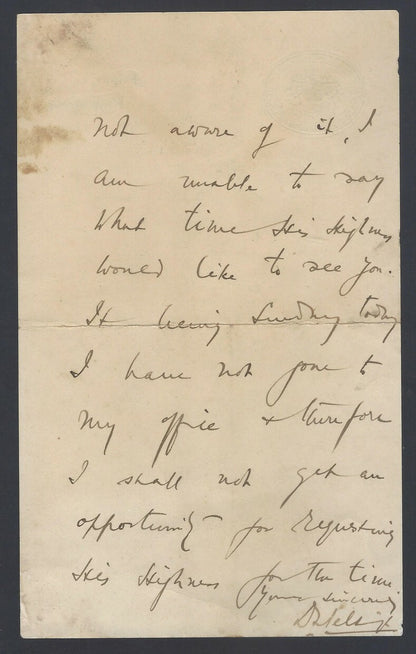 Not aware of it, I
am unable to say
what time His Highness
would like to see you.
It being Sunday today
I have not gone to
my office & therefore
I shall not get an
opportunity for requesting
His Highness for the time
Yours Sincerely